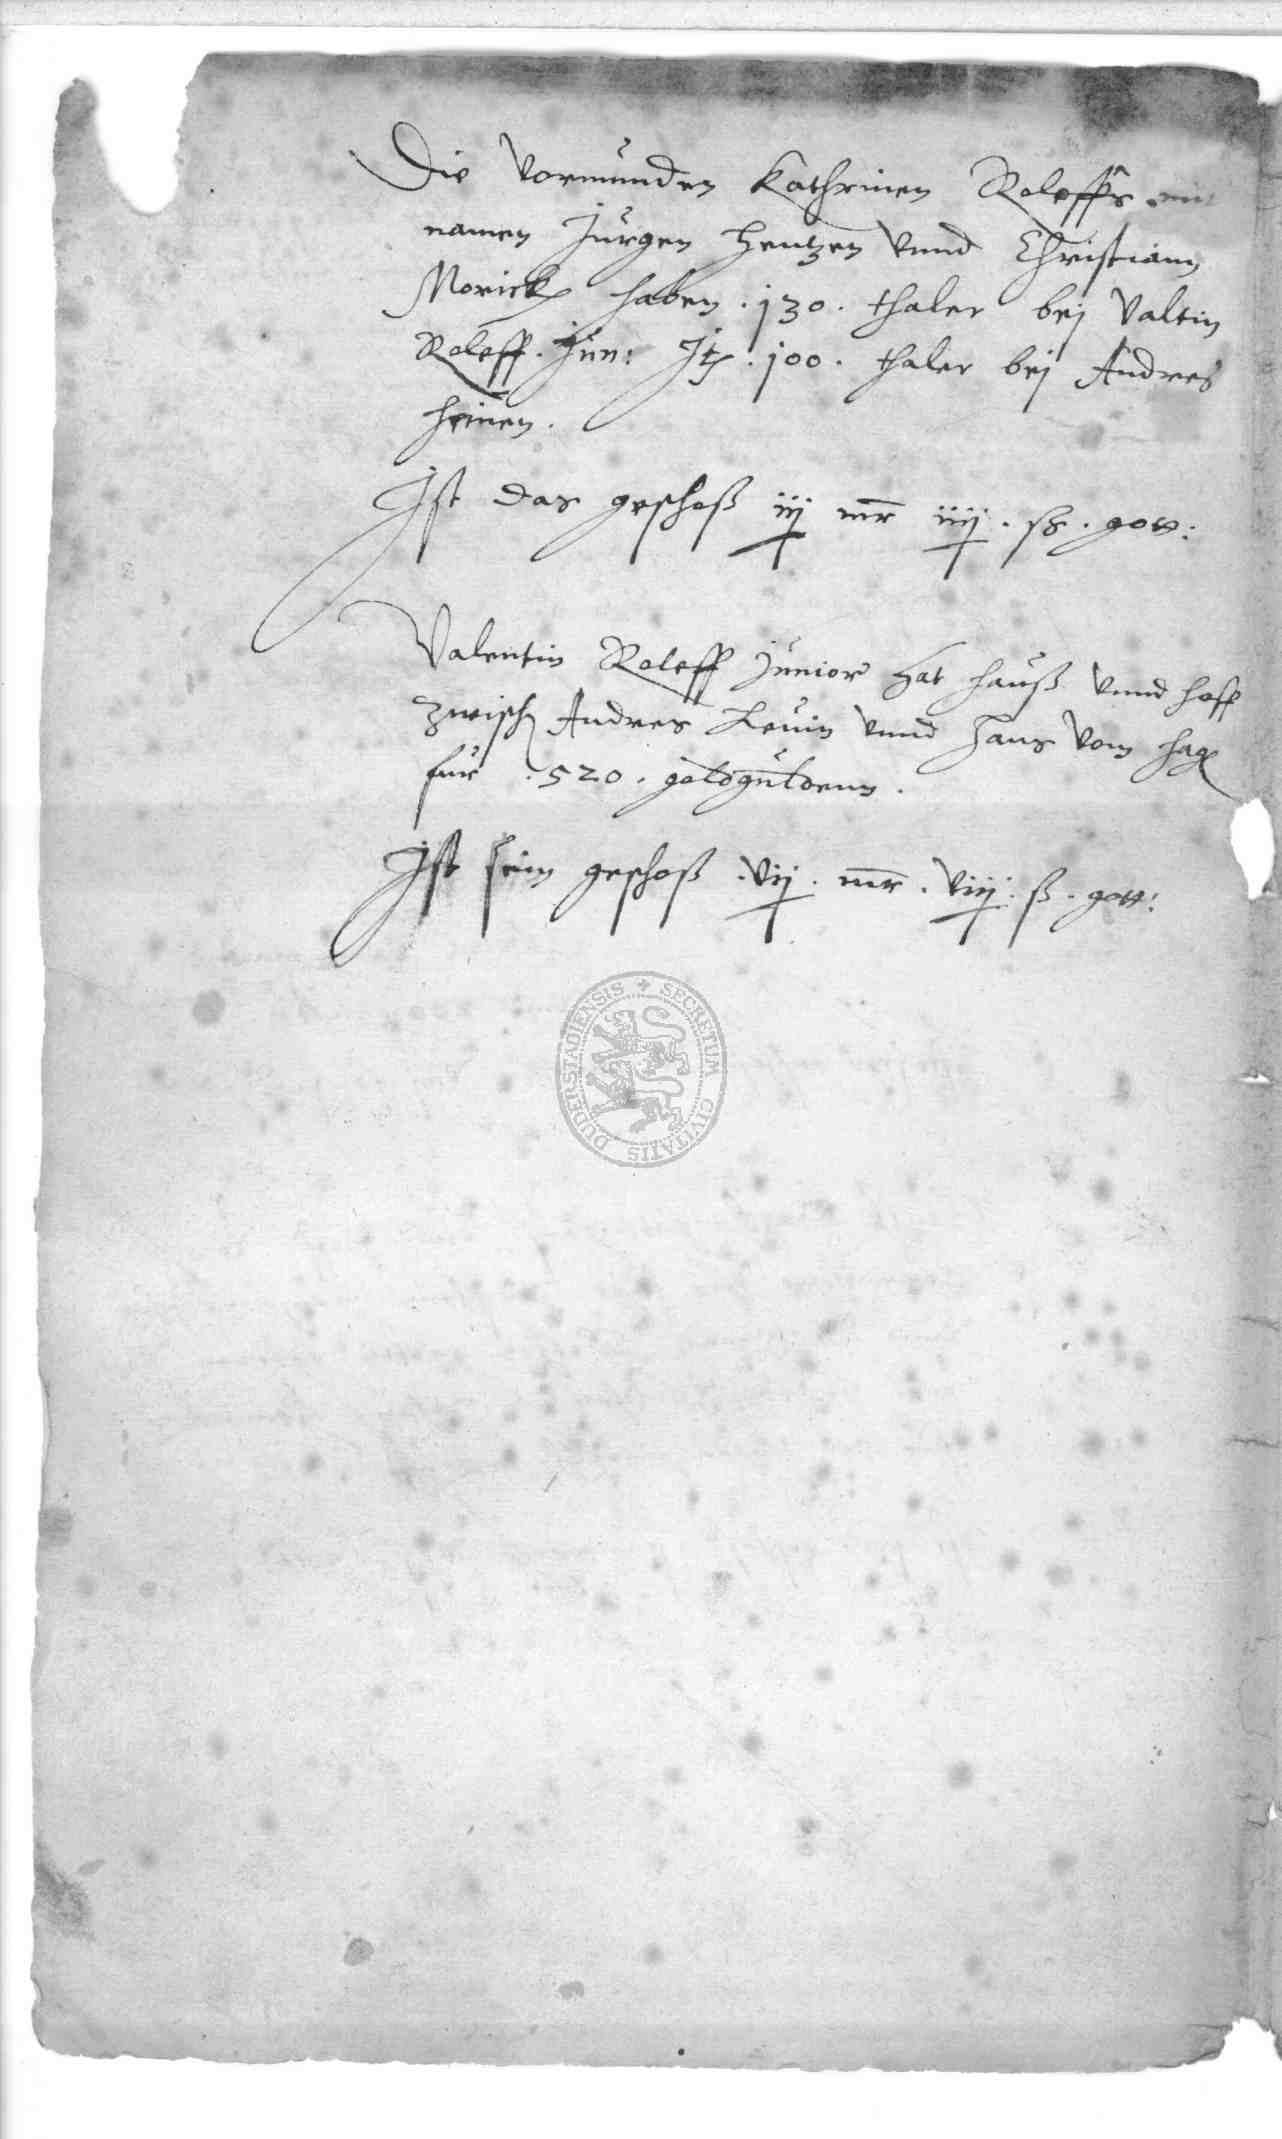 Die Vormunden Kathrinen Roleffs mit
namen Jurgen Hentzen Vnnd Christiann
Morick haben . 130 . thaler bej Valtin
Roleff . Jun: Jt . 100 . thaler bej Andres
heinen .
Jst das geschoß iij mr iiij . ß . gott:
Valentin Roleff Junior hat hauß Vnnd hoff
Zwisch Andres Leuin Vnnd Hans Vom hag
fur . 520 . goltguldenn .
Jst sein geschoß . Vij . mr . Viiij . ß . gott:
SECRETUM CIVITATIS DUDERSTADIENSIS